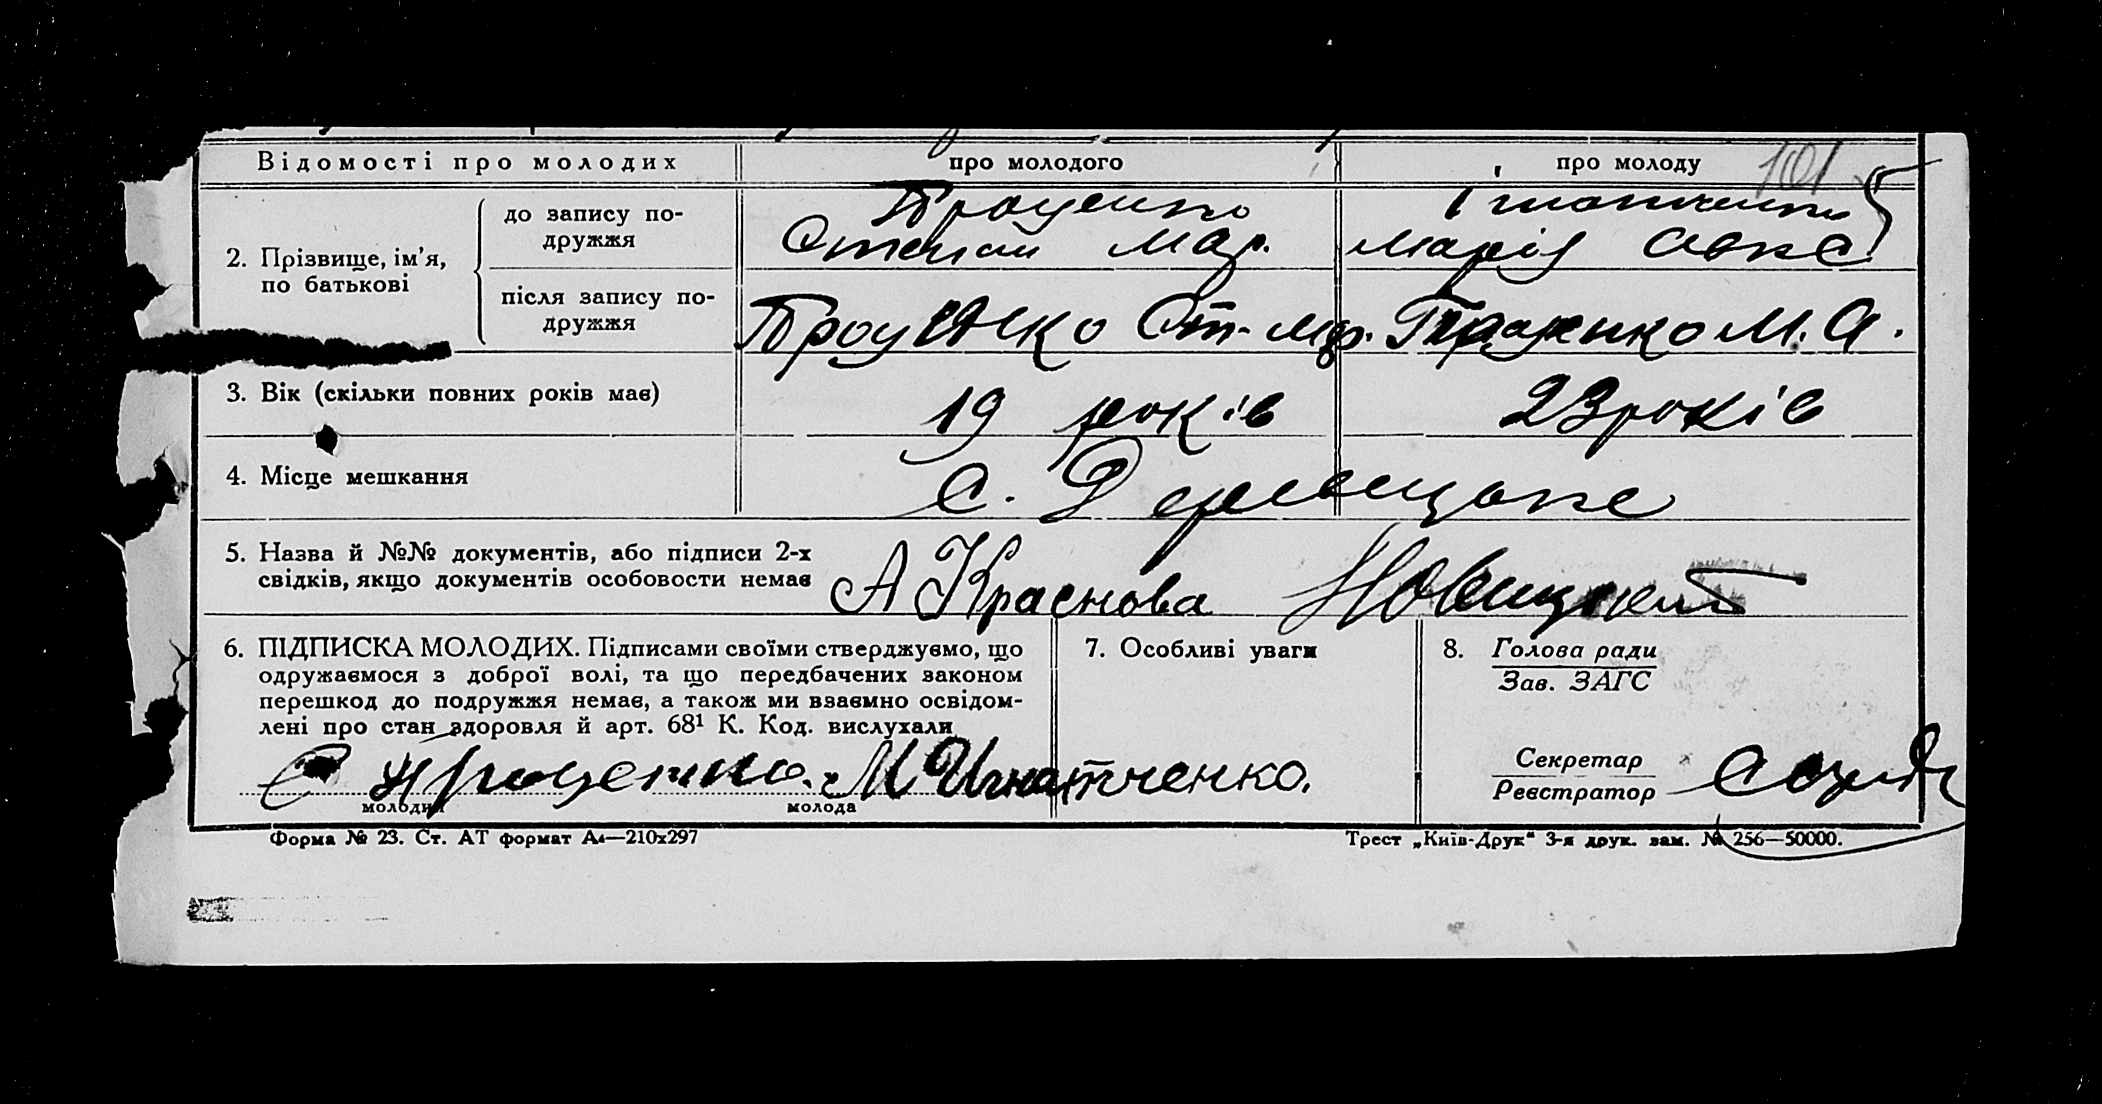 Відомості про молодих про молодого про молоду 101
2. Прізвище, ім'я, по батькові
до запису подружжя
Проценко
Степан Мар.
Ігнатченко
Марія Овкс
після запису подружжя
Проценко Ст. Мар. Проценко М. А.
3. Вік (скільки повних років має) 19 років 23 років
4. Місце мешкання с.
5. Назва й №№ документів, або підписи 2-х
свідків, якщо документів особовости немає А Краснова Новицкий
6. ПІДПИСКА МОЛОДИХ. Підписами своїми стверджуємо, що
одружаємося з доброї волі, та що передбачених законом
перешкод до подружжя немає, а також ми взаємно освідом-
лені про стан здоровля й арт. 68¹ К. Код. вислухали
С Проценко. М Игнатченко.
молодий молода
7. Особливі уваги
8. Голова ради
Зав. ЗАГС
Секретар
Реєстратор
Форма № 23. Ст. АТ формат А4—210x297
Трест „Київ-Друк“ 3-я друк. зам. № 256—50000.